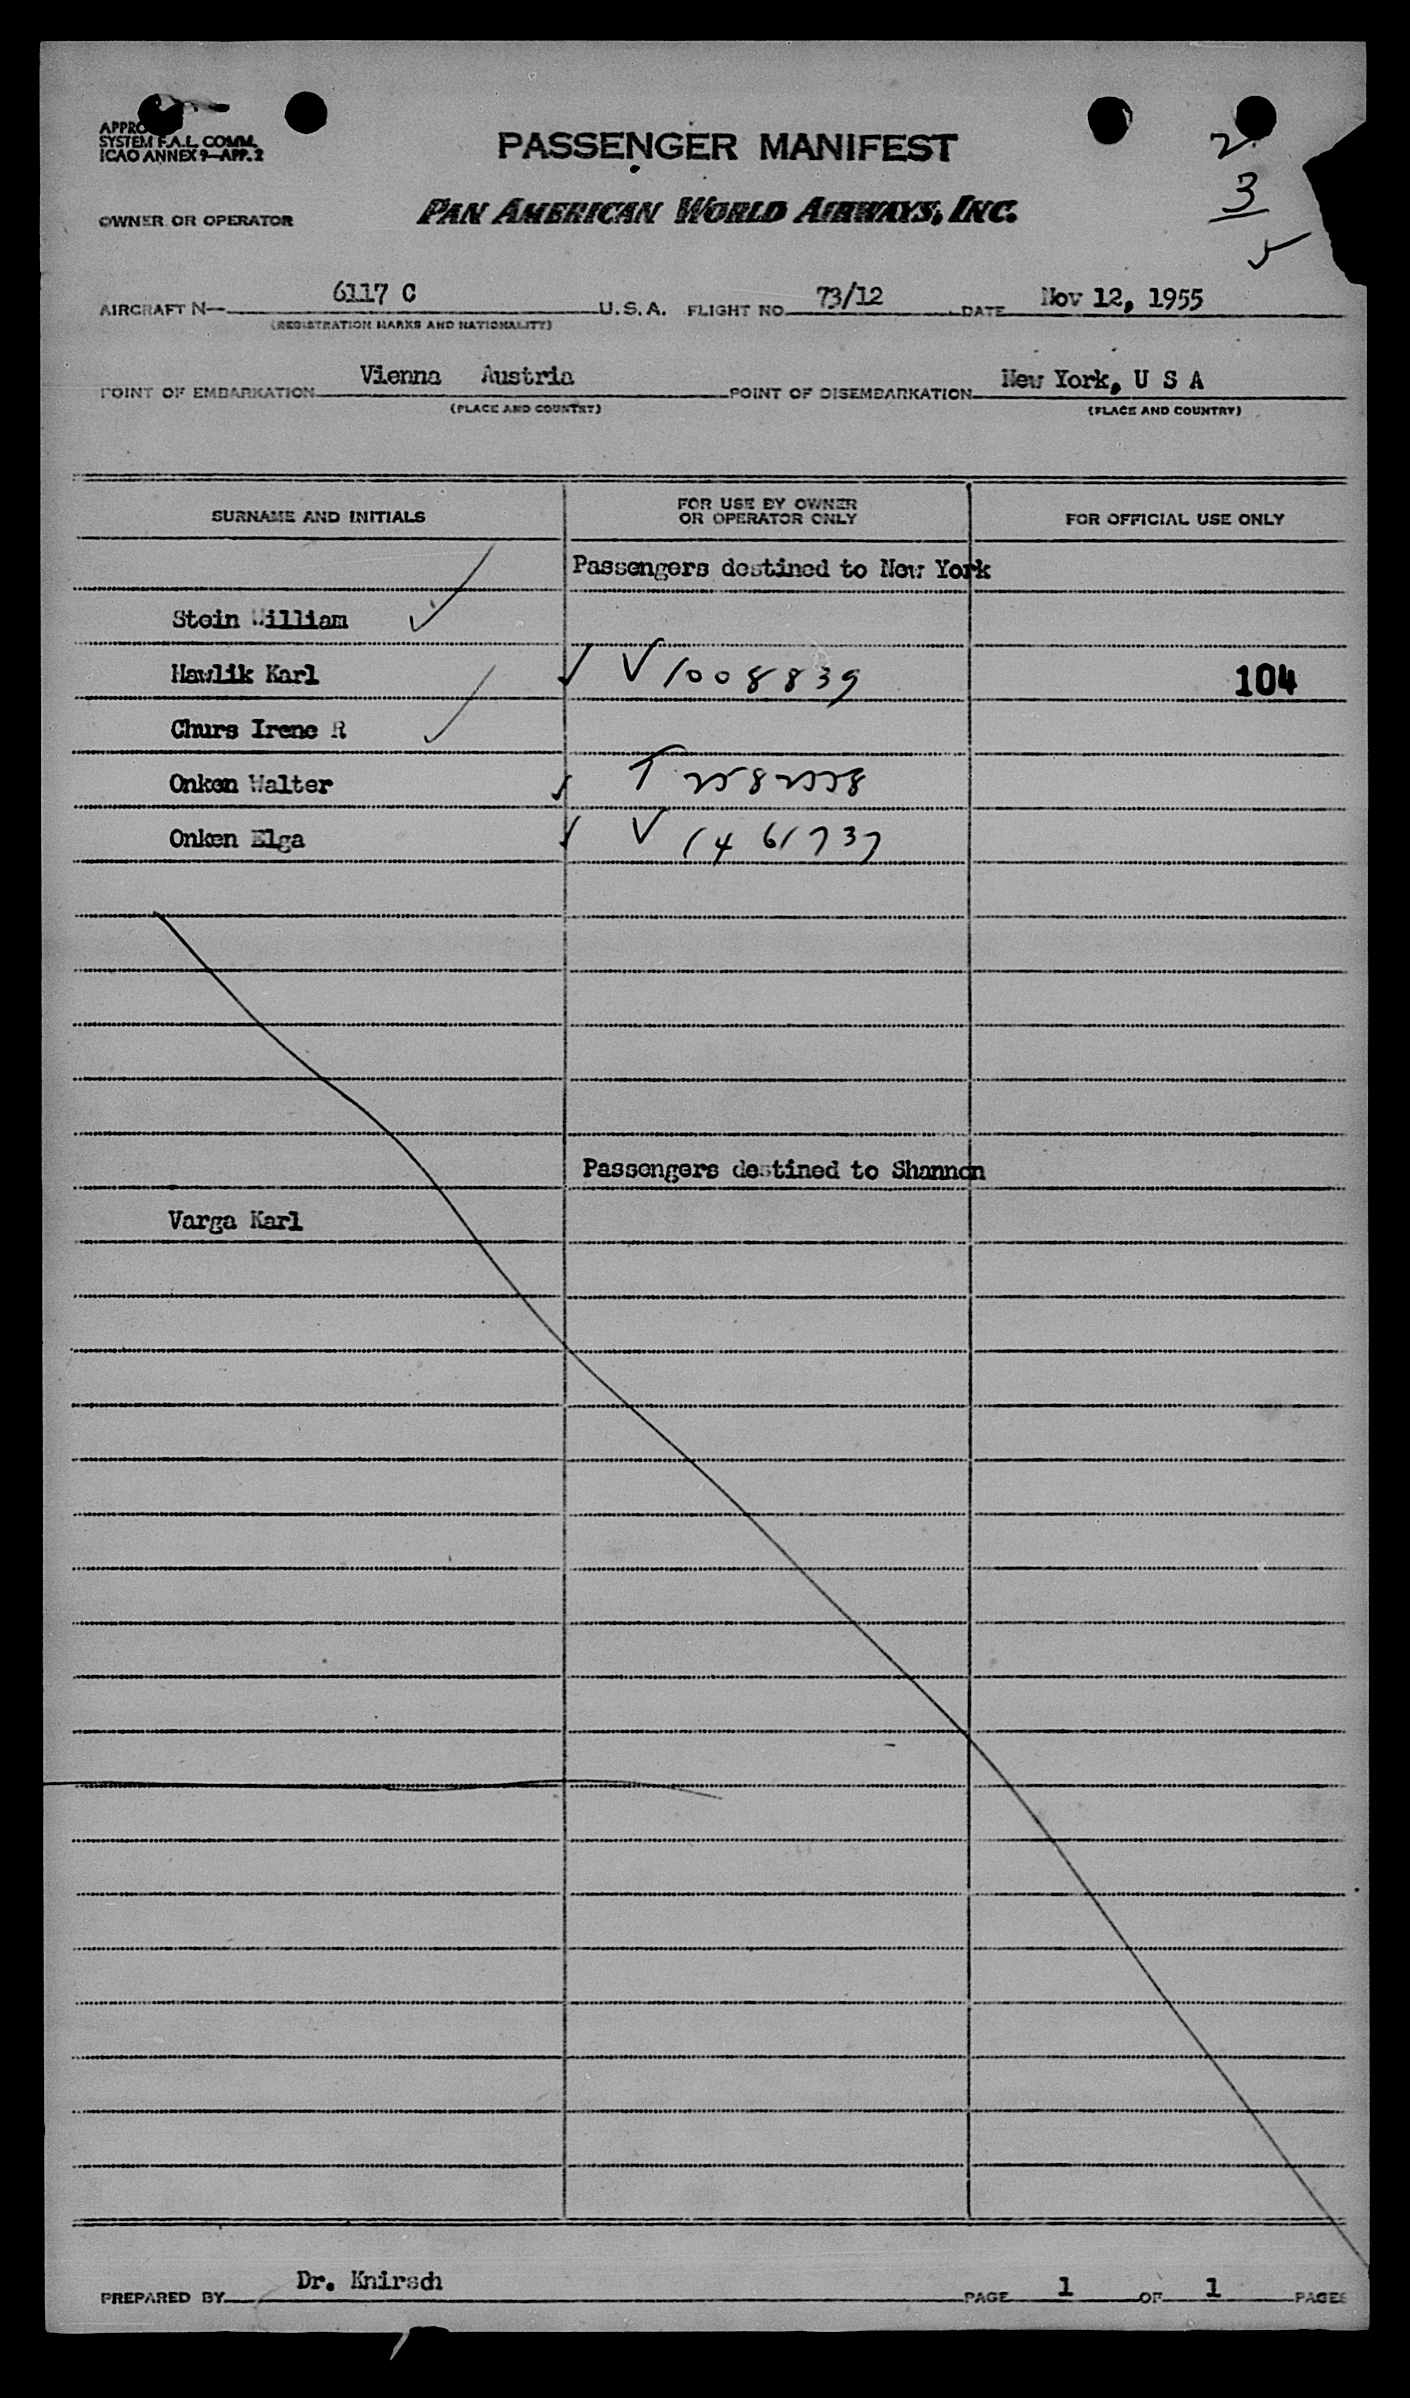 PASSENGER MANIFEST
SYSTEM F.A.L. COMM.
ICAO ANNEX 9—APP. 2
2
3
5
OWNER OR OPERATOR PAN AMERICAN WORLD AIRWAYS, INC.
AIRCRAFT N— 6117 C U.S.A. FLIGHT NO 73/12 DATE Nov 12, 1955
(REGISTRATION MARKS AND NATIONALITY)
POINT OF EMBARKATION Vienna Austria POINT OF DISEMBARKATION New York, U S A
(PLACE AND COUNTRY) (PLACE AND COUNTRY)
SURNAME AND INITIALS FOR USE BY OWNER OR OPERATOR ONLY FOR OFFICIAL USE ONLY
Passengers destined to New York
Stein William
Hawlik Karl V 1008839 104
Churs Irene R
Onken Walter T
Onken Elga V 1461737
Passengers destined to Shannon
Varga Karl
PREPARED BY Dr. Knirsch PAGE 1 OF 1 PAGES